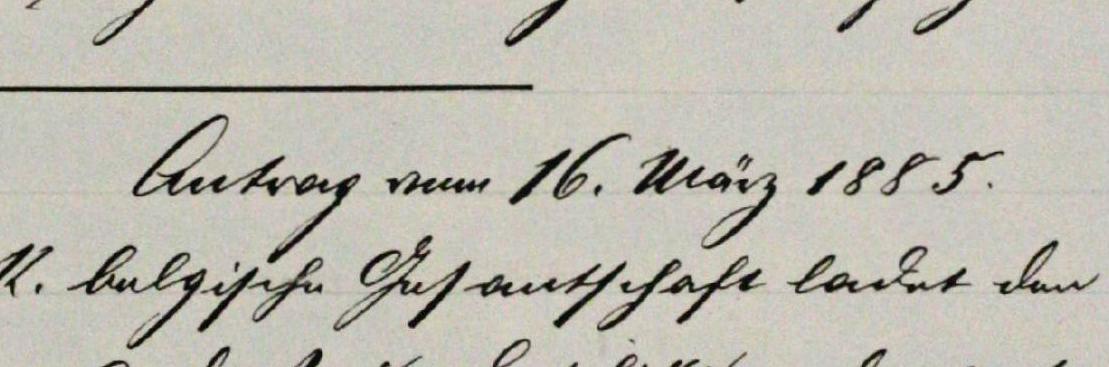 Antrag vom 16. März 1885.
K. belgische Gesantschaft ladet den